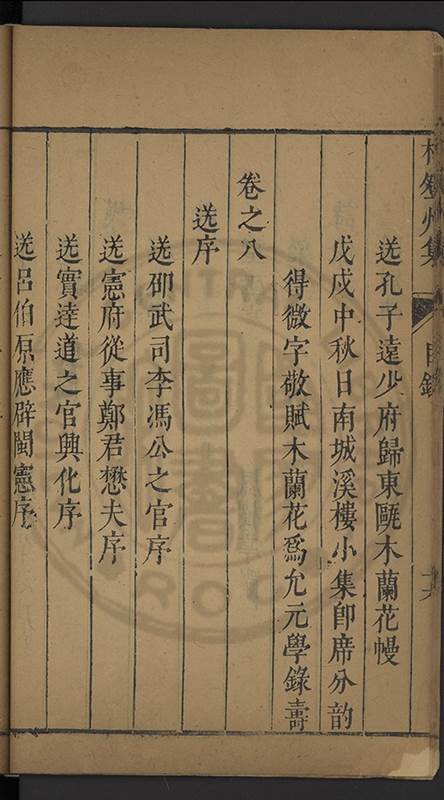 送孔子遠少府歸東甌木蘭花幔
戊戌中秋日南城溪樓小集即席分韵
得微字敬賦木蘭花為允元學錄壽
卷之八
送序
送邵武司李馮公之官序
送憲府從事鄭君懋夫序
送實達道之官興化序
送呂伯原應辟閩憲序